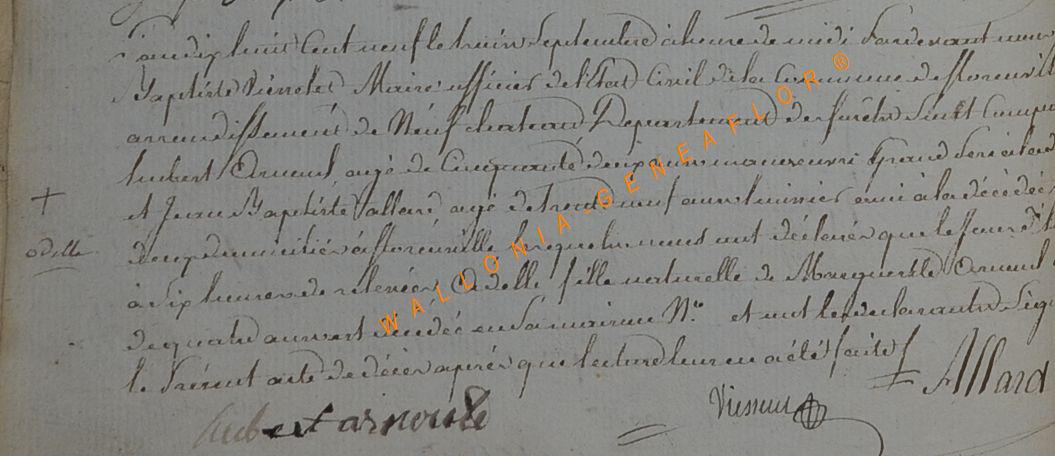 L'an dix huit Cent neuf le trois Septembre à heure de midi pardevant nous
Baptiste Maire officier de l'Etat Civil de la Commune de florenville
arrondissement de Neufchateau Departement des forêts Sont Comparu
hubert Arnoul agé de Cinquante deux ans manoeuvre Grand Pere
+ et Jean Baptiste allard agé de trente neuf ans ami à la décédée
Odille
deux domiciliés à florenville lesquels nous ont déclaré que le jour
à Six heures de relevée Odelle fille naturelle de Marguerite Arnoul
de quatre ans est décédée en Sa maison N.° et ont les declarants Signé
le Présent acte de décès après que lecture leur en a été faite
Allard
hubert arnould
WALLONIA-GENEAFLOR ®